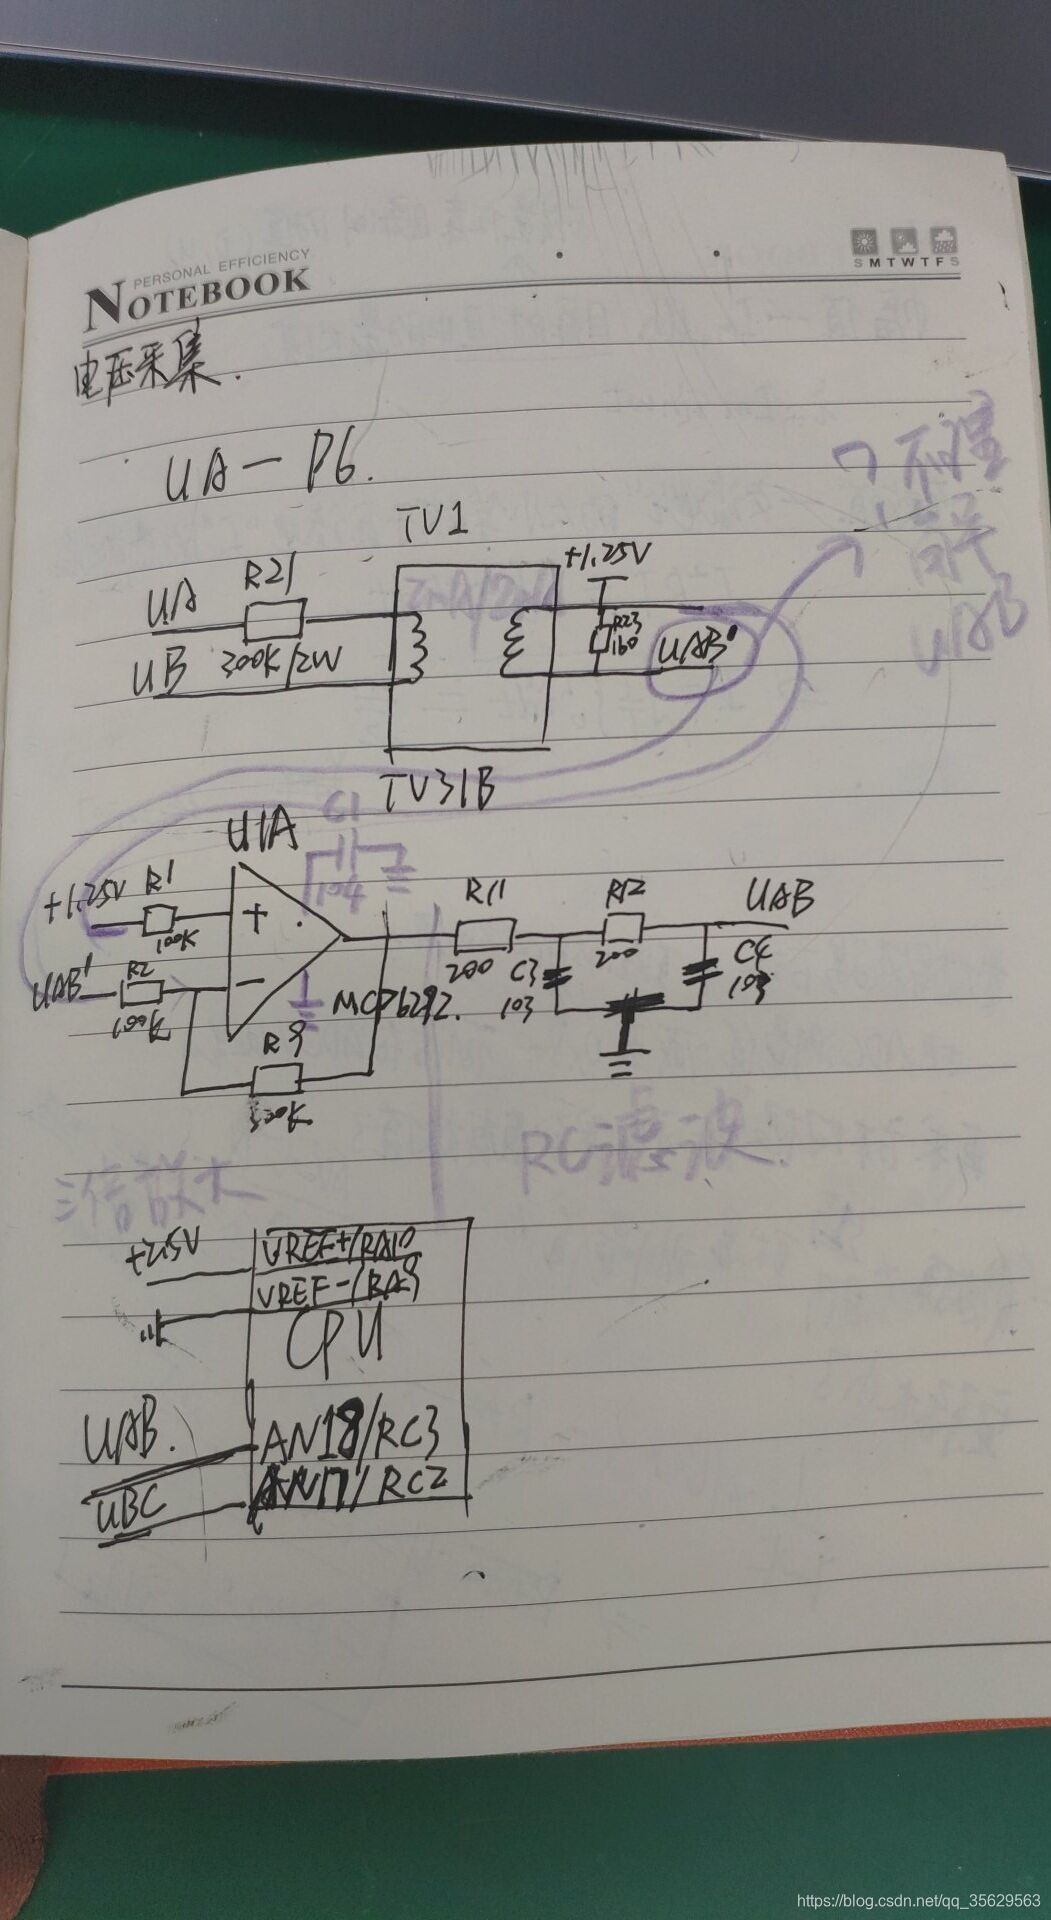 PERSONAL EFFICIENCY
NOTEBOOK
S M T W T F S
电压采集.
UA— P6.
TV1
+1.25V
UA
R21
2mA/2mA
R23
160
UAB'
UB
300K/2W
TV31B
不是
UAB
C1
104
U1A
+1.25V
R1
100K
+
R11
200
R12
200
UAB
UAB'
R2
100K
-
MCP6292.
C3
103
C4
103
R9
300K
三倍放大
RC滤波.
+2.5V
VREF+/RA10
VREF-/RA9
CPU
UAB.
AN18/RC3
UBC
AN17/RC2
https://blog.csdn.net/qq_35629563